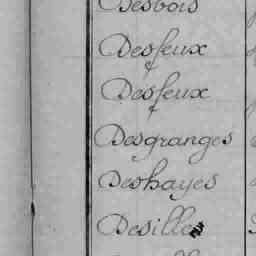 Desbois
Desfeux
Desfeux
Desgranges
Deshayes
Desilles